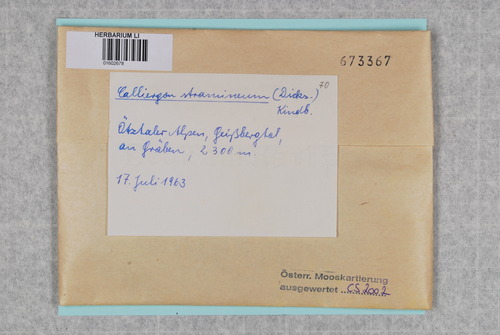 HERBARIUM LI
01602678
673367
Calliergon stramineum (Dicks.) 70
Kindb.
Ötztaler Alpen, Geißbergtal,
an Gräben, 2300 m.
17. Juli 1963
Österr. Mooskartierung
ausgewertet CS 2002